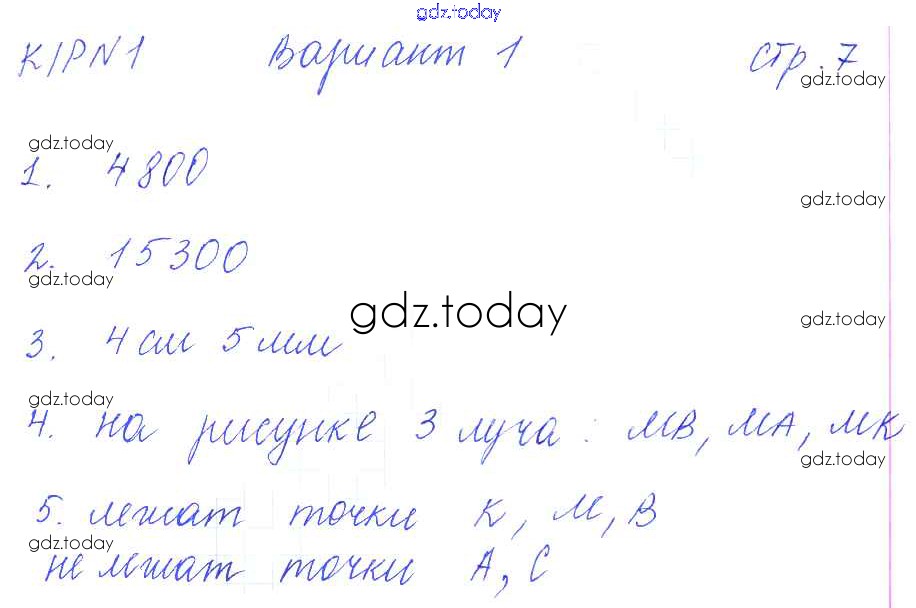 gdz.today
К/Р№1 Вариант 1 стр. 7
gdz.today
gdz.today
1. 4800
gdz.today
2. 15300
gdz.today
gdz.today
gdz.today
3. 4 см 5 мм
gdz.today
4. на рисунке 3 луча: МВ, МА, МК
gdz.today
5. лежат точки К, М, В
gdz.today
не лежат точки А, С